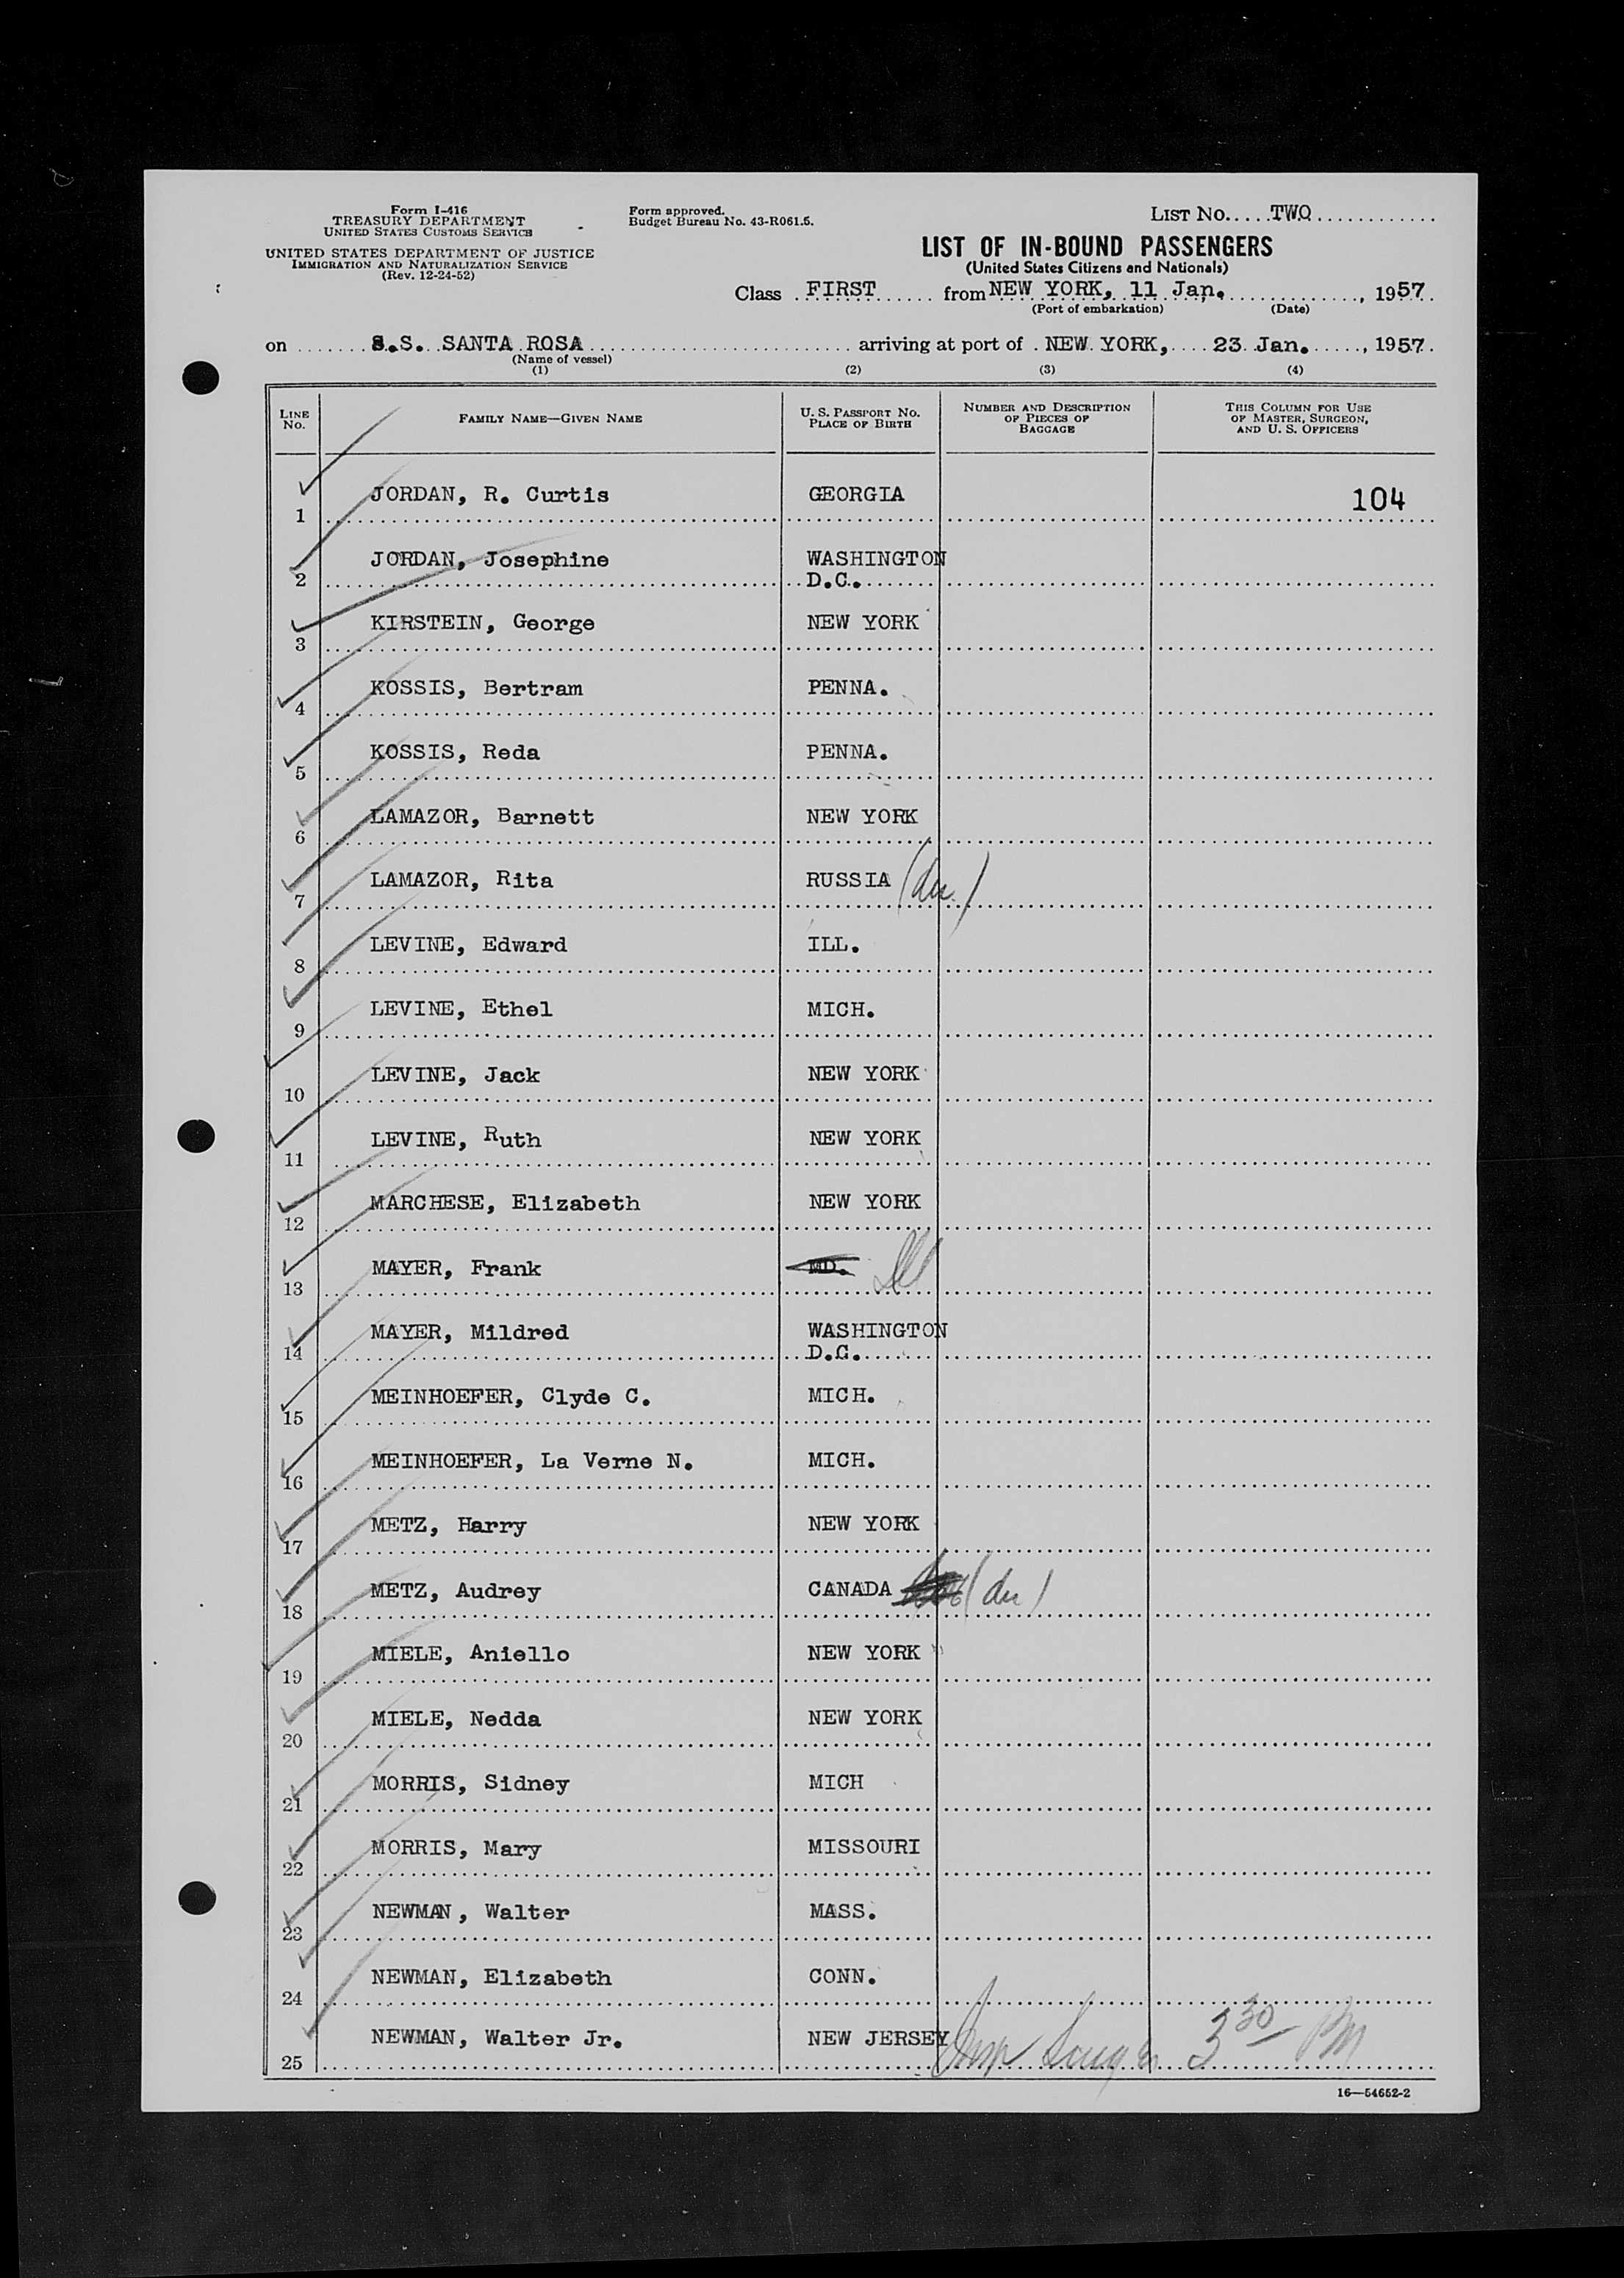 Form I-416
TREASURY DEPARTMENT
UNITED STATES CUSTOMS SERVICE
UNITED STATES DEPARTMENT OF JUSTICE
IMMIGRATION AND NATURALIZATION SERVICE
(Rev. 12-24-52)
Form approved.
Budget Bureau No. 43-R061.5.
LIST No. TWO
LIST OF IN-BOUND PASSENGERS
(United States Citizens and Nationals)
Class FIRST from NEW YORK, 11 Jan. , 1957.
(Port of embarkation) (Date)
on S.S. SANTA ROSA arriving at port of NEW YORK, 23 Jan. , 1957.
(Name of vessel)
(1) (2) (3) (4)
LINE No. FAMILY NAME—GIVEN NAME U. S. PASSPORT No. PLACE OF BIRTH NUMBER AND DESCRIPTION OF PIECES OF BAGGAGE THIS COLUMN FOR USE OF MASTER, SURGEON, AND U. S. OFFICERS
1 JORDAN, R. Curtis GEORGIA 104
2 JORDAN, Josephine WASHINGTON D.C.
3 KIRSTEIN, George NEW YORK
4 KOSSIS, Bertram PENNA.
5 KOSSIS, Reda PENNA.
6 LAMAZOR, Barnett NEW YORK
7 LAMAZOR, Rita RUSSIA
8 LEVINE, Edward ILL.
9 LEVINE, Ethel MICH.
10 LEVINE, Jack NEW YORK
11 LEVINE, Ruth NEW YORK
12 MARCHESE, Elizabeth NEW YORK
13 MAYER, Frank MD. Ill
14 MAYER, Mildred WASHINGTON D.C.
15 MEINHOEFER, Clyde C. MICH.
16 MEINHOEFER, La Verne N. MICH.
17 METZ, Harry NEW YORK
18 METZ, Audrey CANADA
19 MIELE, Aniello NEW YORK
20 MIELE, Nedda NEW YORK
21 MORRIS, Sidney MICH
22 MORRIS, Mary MISSOURI
23 NEWMAN, Walter MASS.
24 NEWMAN, Elizabeth CONN.
25 NEWMAN, Walter Jr. NEW JERSEY 3 30 PM
16—54652-2